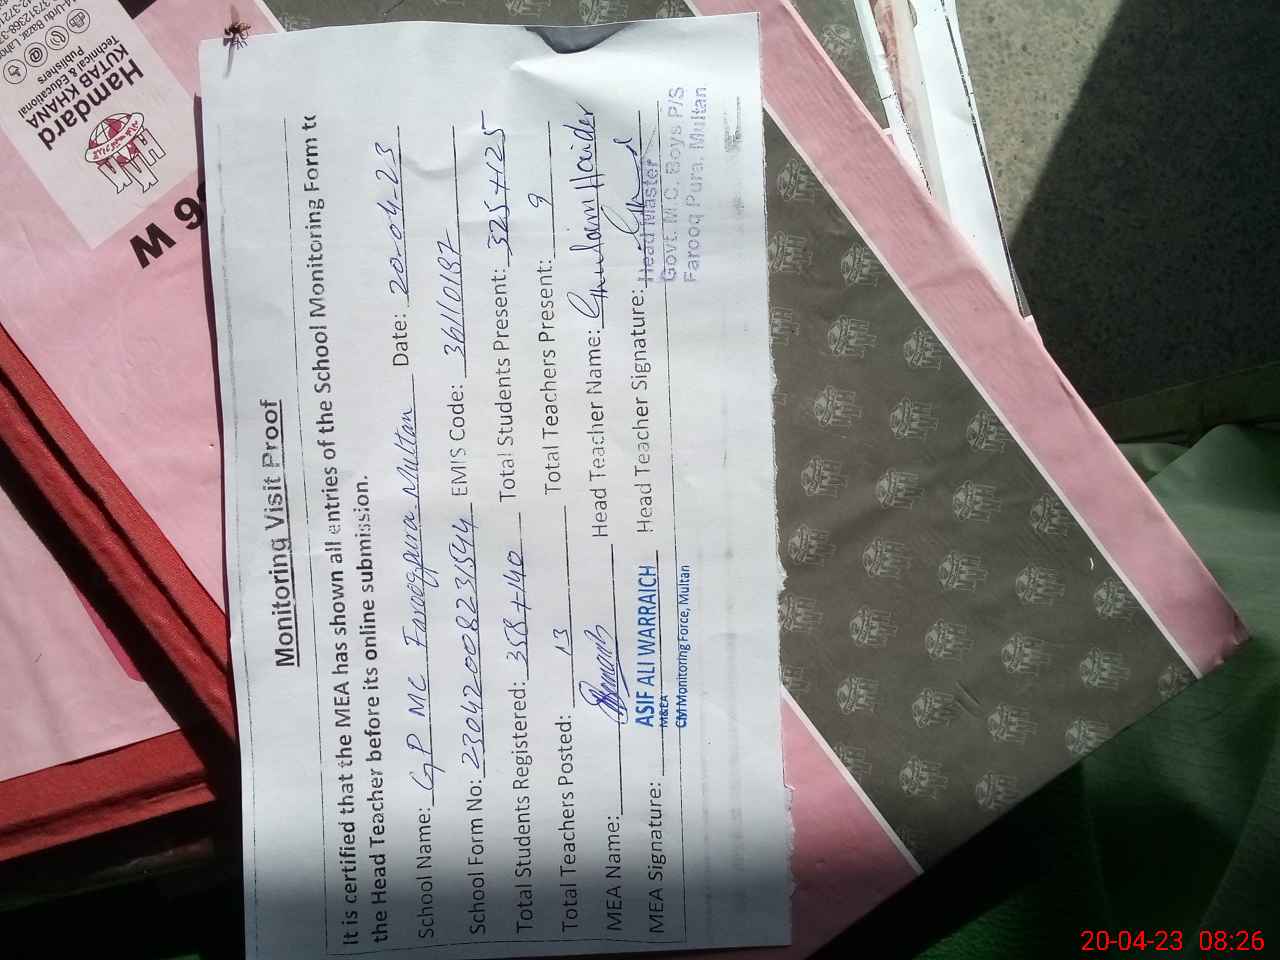 Monitoring Visit Proof
It is certified that the MEA has shown all entries of the School Monitoring Form to
the Head Teacher before its online submission.
School Name: GP MC Farooqpura Multan Date: 20-04-23
School Form No: 230420008231594 EMIS Code: 36110187
Total Students Registered: 358+140 Total Students Present: 325+125
Total Teachers Posted: 13 Total Teachers Present: 9
MEA Name: Head Teacher Name: Ghulam Haider
MEA Signature: Head Teacher Signature:
ASIF ALI WARRAICH
M&EA
CM Monitoring Force, Multan
Head Master
Govt. M.C. Boys P/S
Farooq Pura, Multan.
Hamdard
KUTAB KHANA
Technical & Educational
Publishers
Urdu Bazar Lahore
36 W
20-04-23 08:26